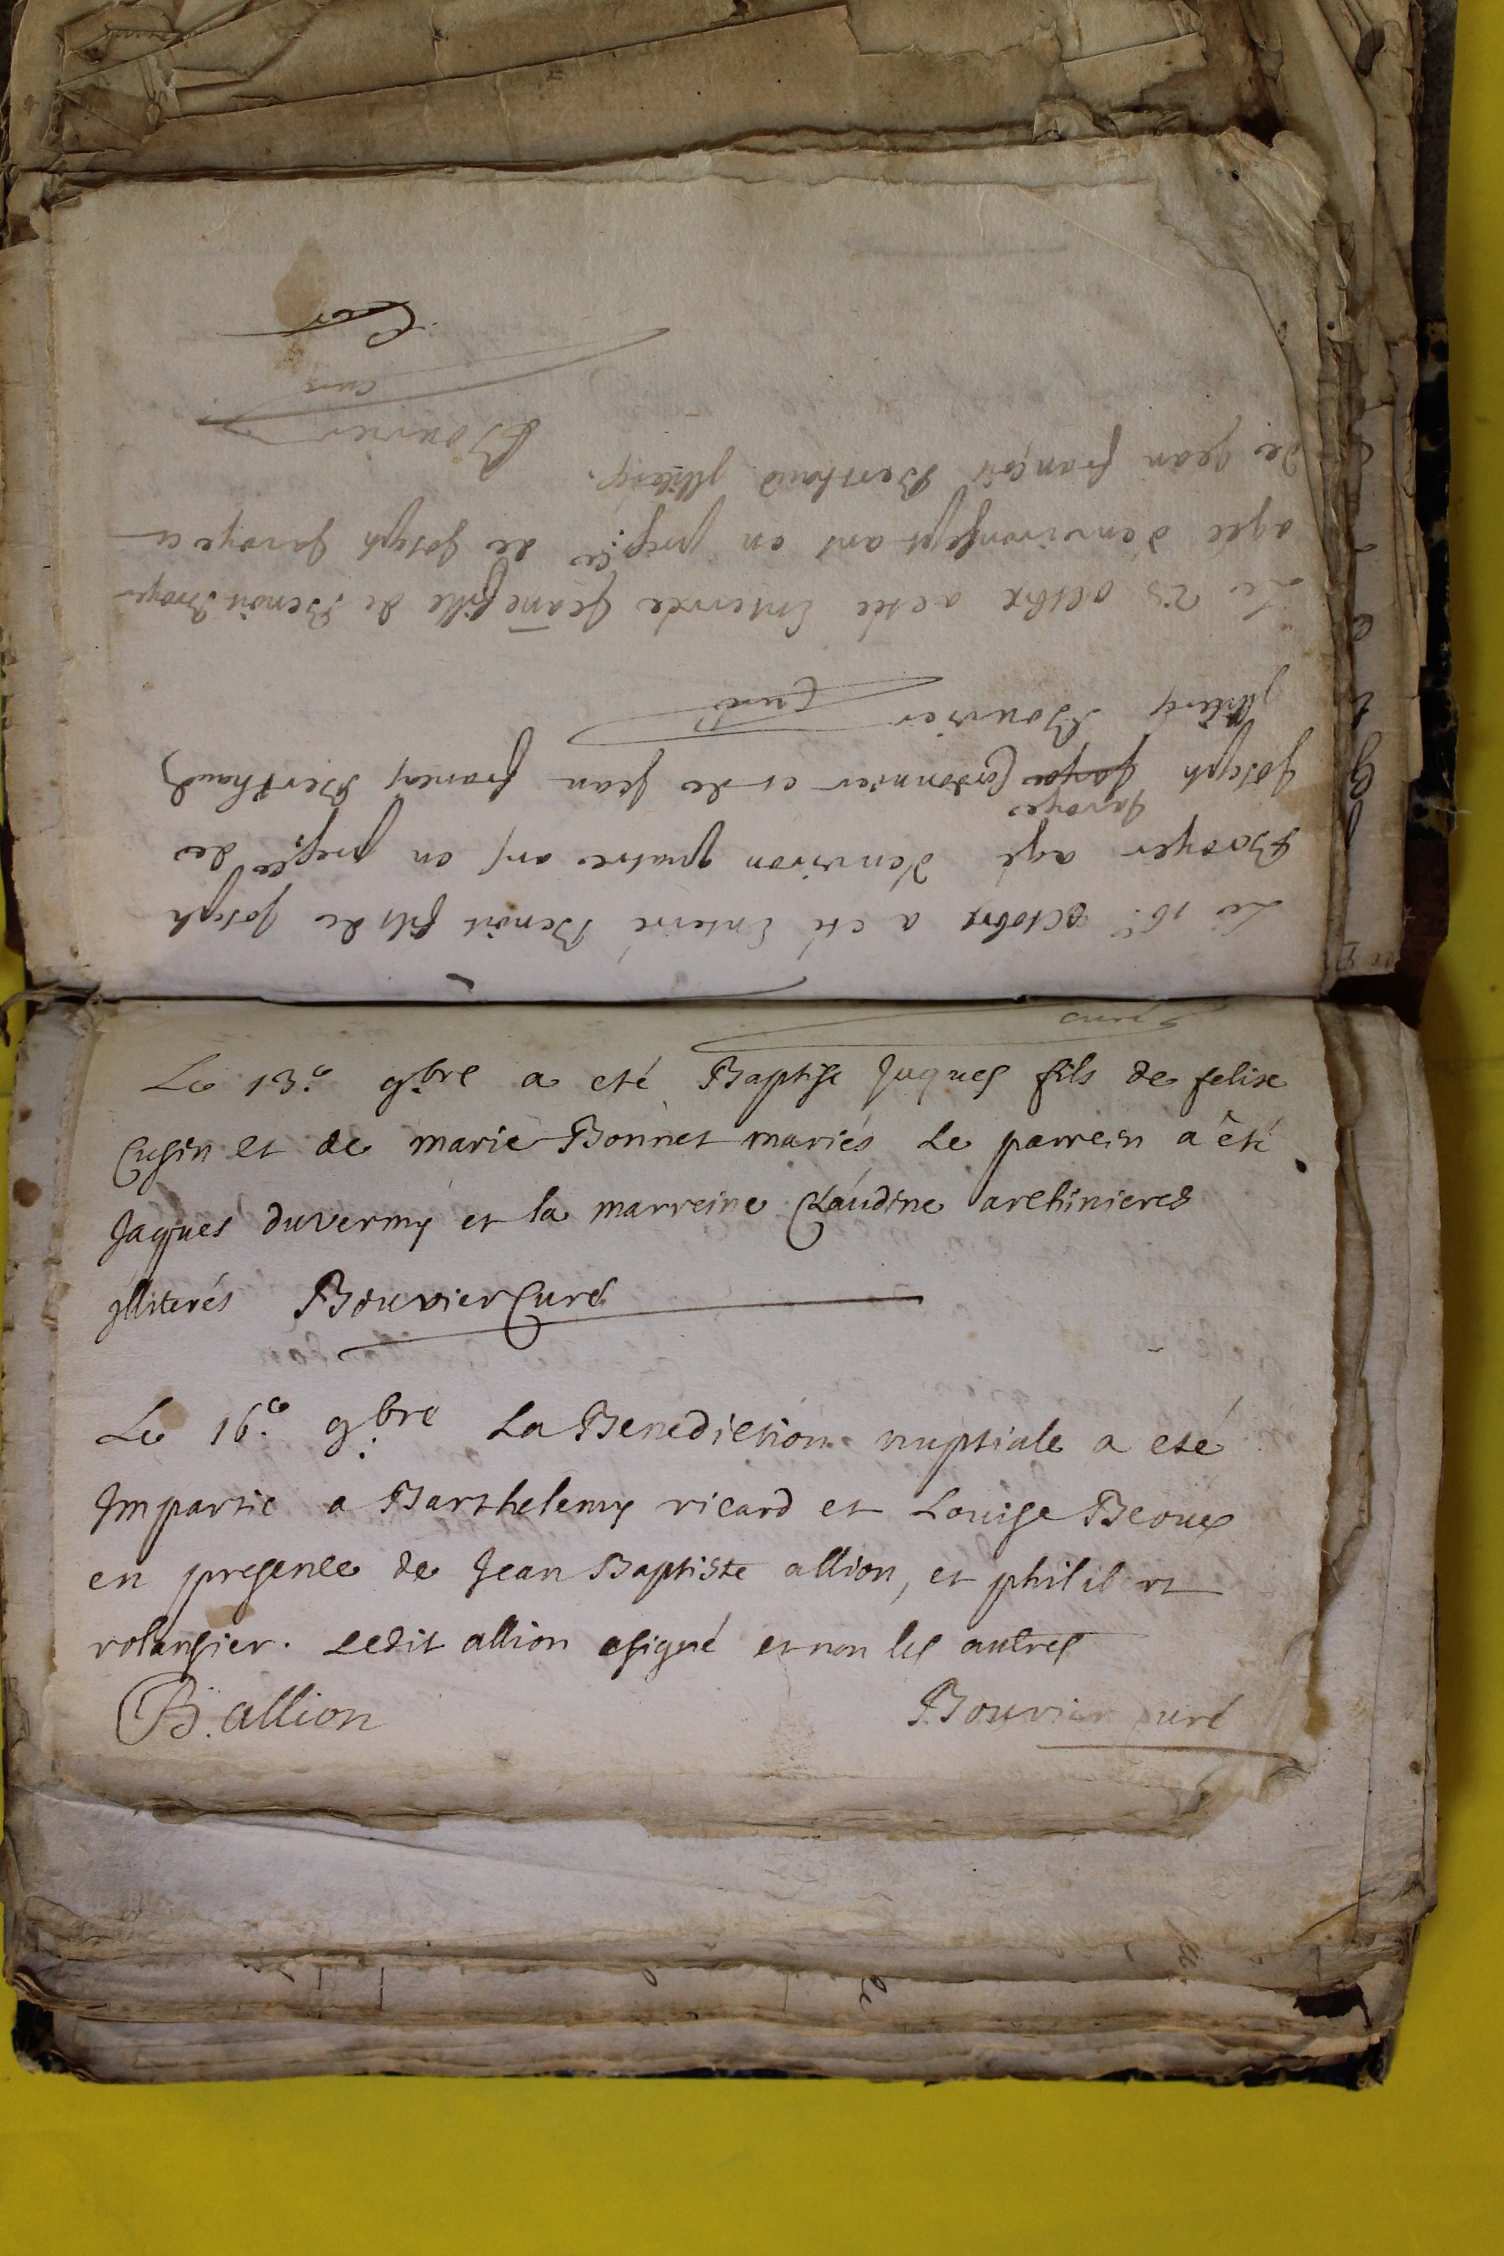 Le 16.e octobre a eté Enterré Benoit fils de Joseph
Boyer agé d'environ quatre ans en presce de
Javoyes
Joseph Cordonnier et de Jean francois Berthaud
illiterés Bouvier Curé
Le 23 octbre a etée Enterrée Jeane fille de Benoit
agée d'environ sept ans en presce de Joseph Javoye et
de Jean françois Berthaud illiterés.
Bouvier
curé
curé
Le 13.e 9.bre a eté Baptisé Jaques fils de felix
Cusin et de marie Bonnet mariés Le parrein a êté
Jaques duvermy et la marreine Claudine archinieres
illiterés Bouvier Curé
Le 16.e 9.bre La Benediction nuptiale a eté
Impartie a Barthelemy ricard et Louise Beoux
en presence de Jean Baptiste allion, et philibert
rolansier. Ledit allion asigné et non les autres
B. allion Bouvier curé